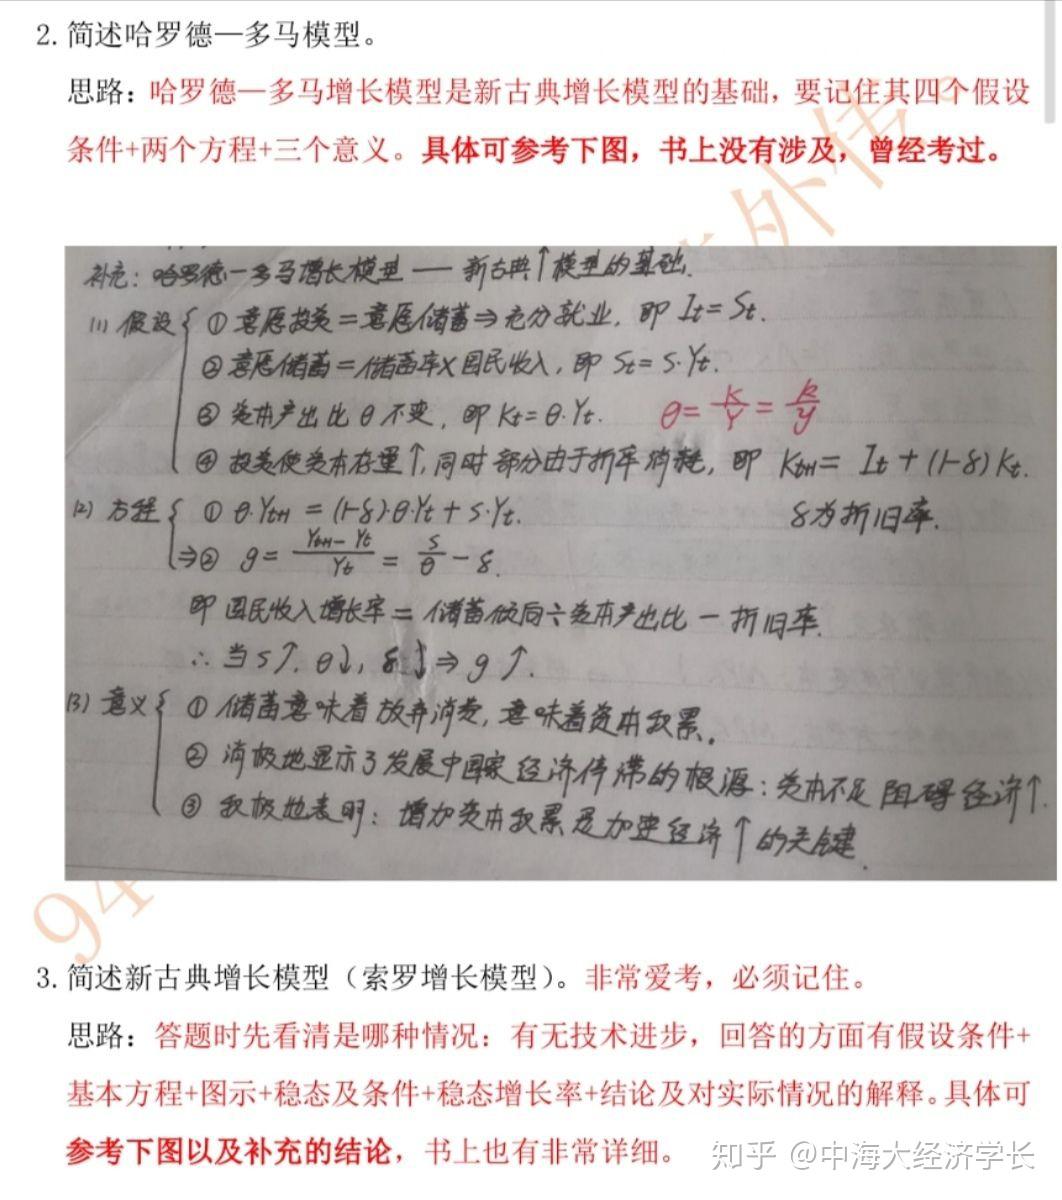 2. 简述哈罗德—多马模型。
思路：哈罗德—多马增长模型是新古典增长模型的基础，要记住其四个假设
条件+两个方程+三个意义。具体可参考下图，书上没有涉及，曾经考过。
外传。
补充：哈罗德-多马增长模型 —— 新古典↑模型的基础.
(1) 假设 { ① 意愿投资=意愿储蓄⇒充分就业, 即 It=St.
② 意愿储蓄=储蓄率×国民收入, 即 St=s·Yt.
③ 资本产出比θ不变, 即 Kt=θ·Yt. θ=K/Y=k/y
④ 投资使资本存量↑, 同时部分由于折旧消耗, 即 Kt+1= It+(1-δ)Kt.
(2) 方程 { ① θ·Yt+1=(1-δ)·θ·Yt+s·Yt. δ为折旧率.
⇒② g= (Yt+1-Yt)/Yt = s/θ - δ.
即 国民收入增长率= 储蓄倾向÷资本产出比-折旧率.
∴当s↑, θ↓, δ↓⇒g↑.
(3) 意义 { ① 储蓄意味着放弃消费, 意味着资本积累。
② 消极地显示了发展中国家经济停滞的根源: 资本不足阻碍经济↑.
③ 积极地表明: 增加资本积累是加速经济↑的关键.
94
3. 简述新古典增长模型（索罗增长模型）。非常爱考，必须记住。
思路：答题时先看清是哪种情况：有无技术进步，回答的方面有假设条件+
基本方程+图示+稳态及条件+稳态增长率+结论及对实际情况的解释。具体可
参考下图以及补充的结论，书上也有非常详细。
知乎 @中海大经济学长